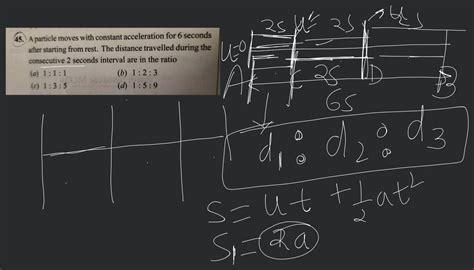 45. A particle moves with constant acceleration for 6 seconds
after starting from rest. The distance travelled during the
consecutive 2 seconds interval are in the ratio
(a) 1 : 1 : 1 (b) 1 : 2 : 3
(c) 1 : 3 : 5 (d) 1 : 5 : 9
2s 2s
u=0
A C 2s D B
6s
d1 : d2 : d3
S = ut + 1/2 at²
S1 = 2a